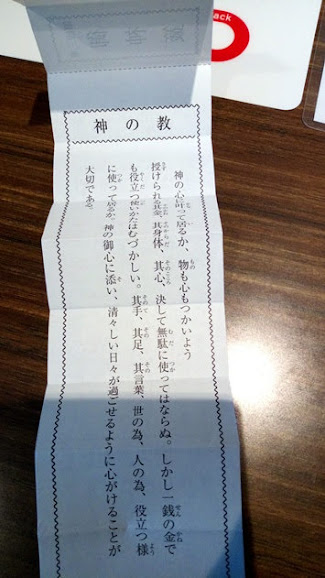 ack
神の教
神の心って居るか、物も心もつかいよう
授けられ其金、其身体、其心、決して無駄に使ってはならぬ。しかし一銭の金で
も役立つ使いかたはむづかしい。其手、其足、其言葉、世の為、人の為、役立つ様
に使って居るか。神の御心に添い、清々しい日々が過ごせるように心がけることが
大切である。